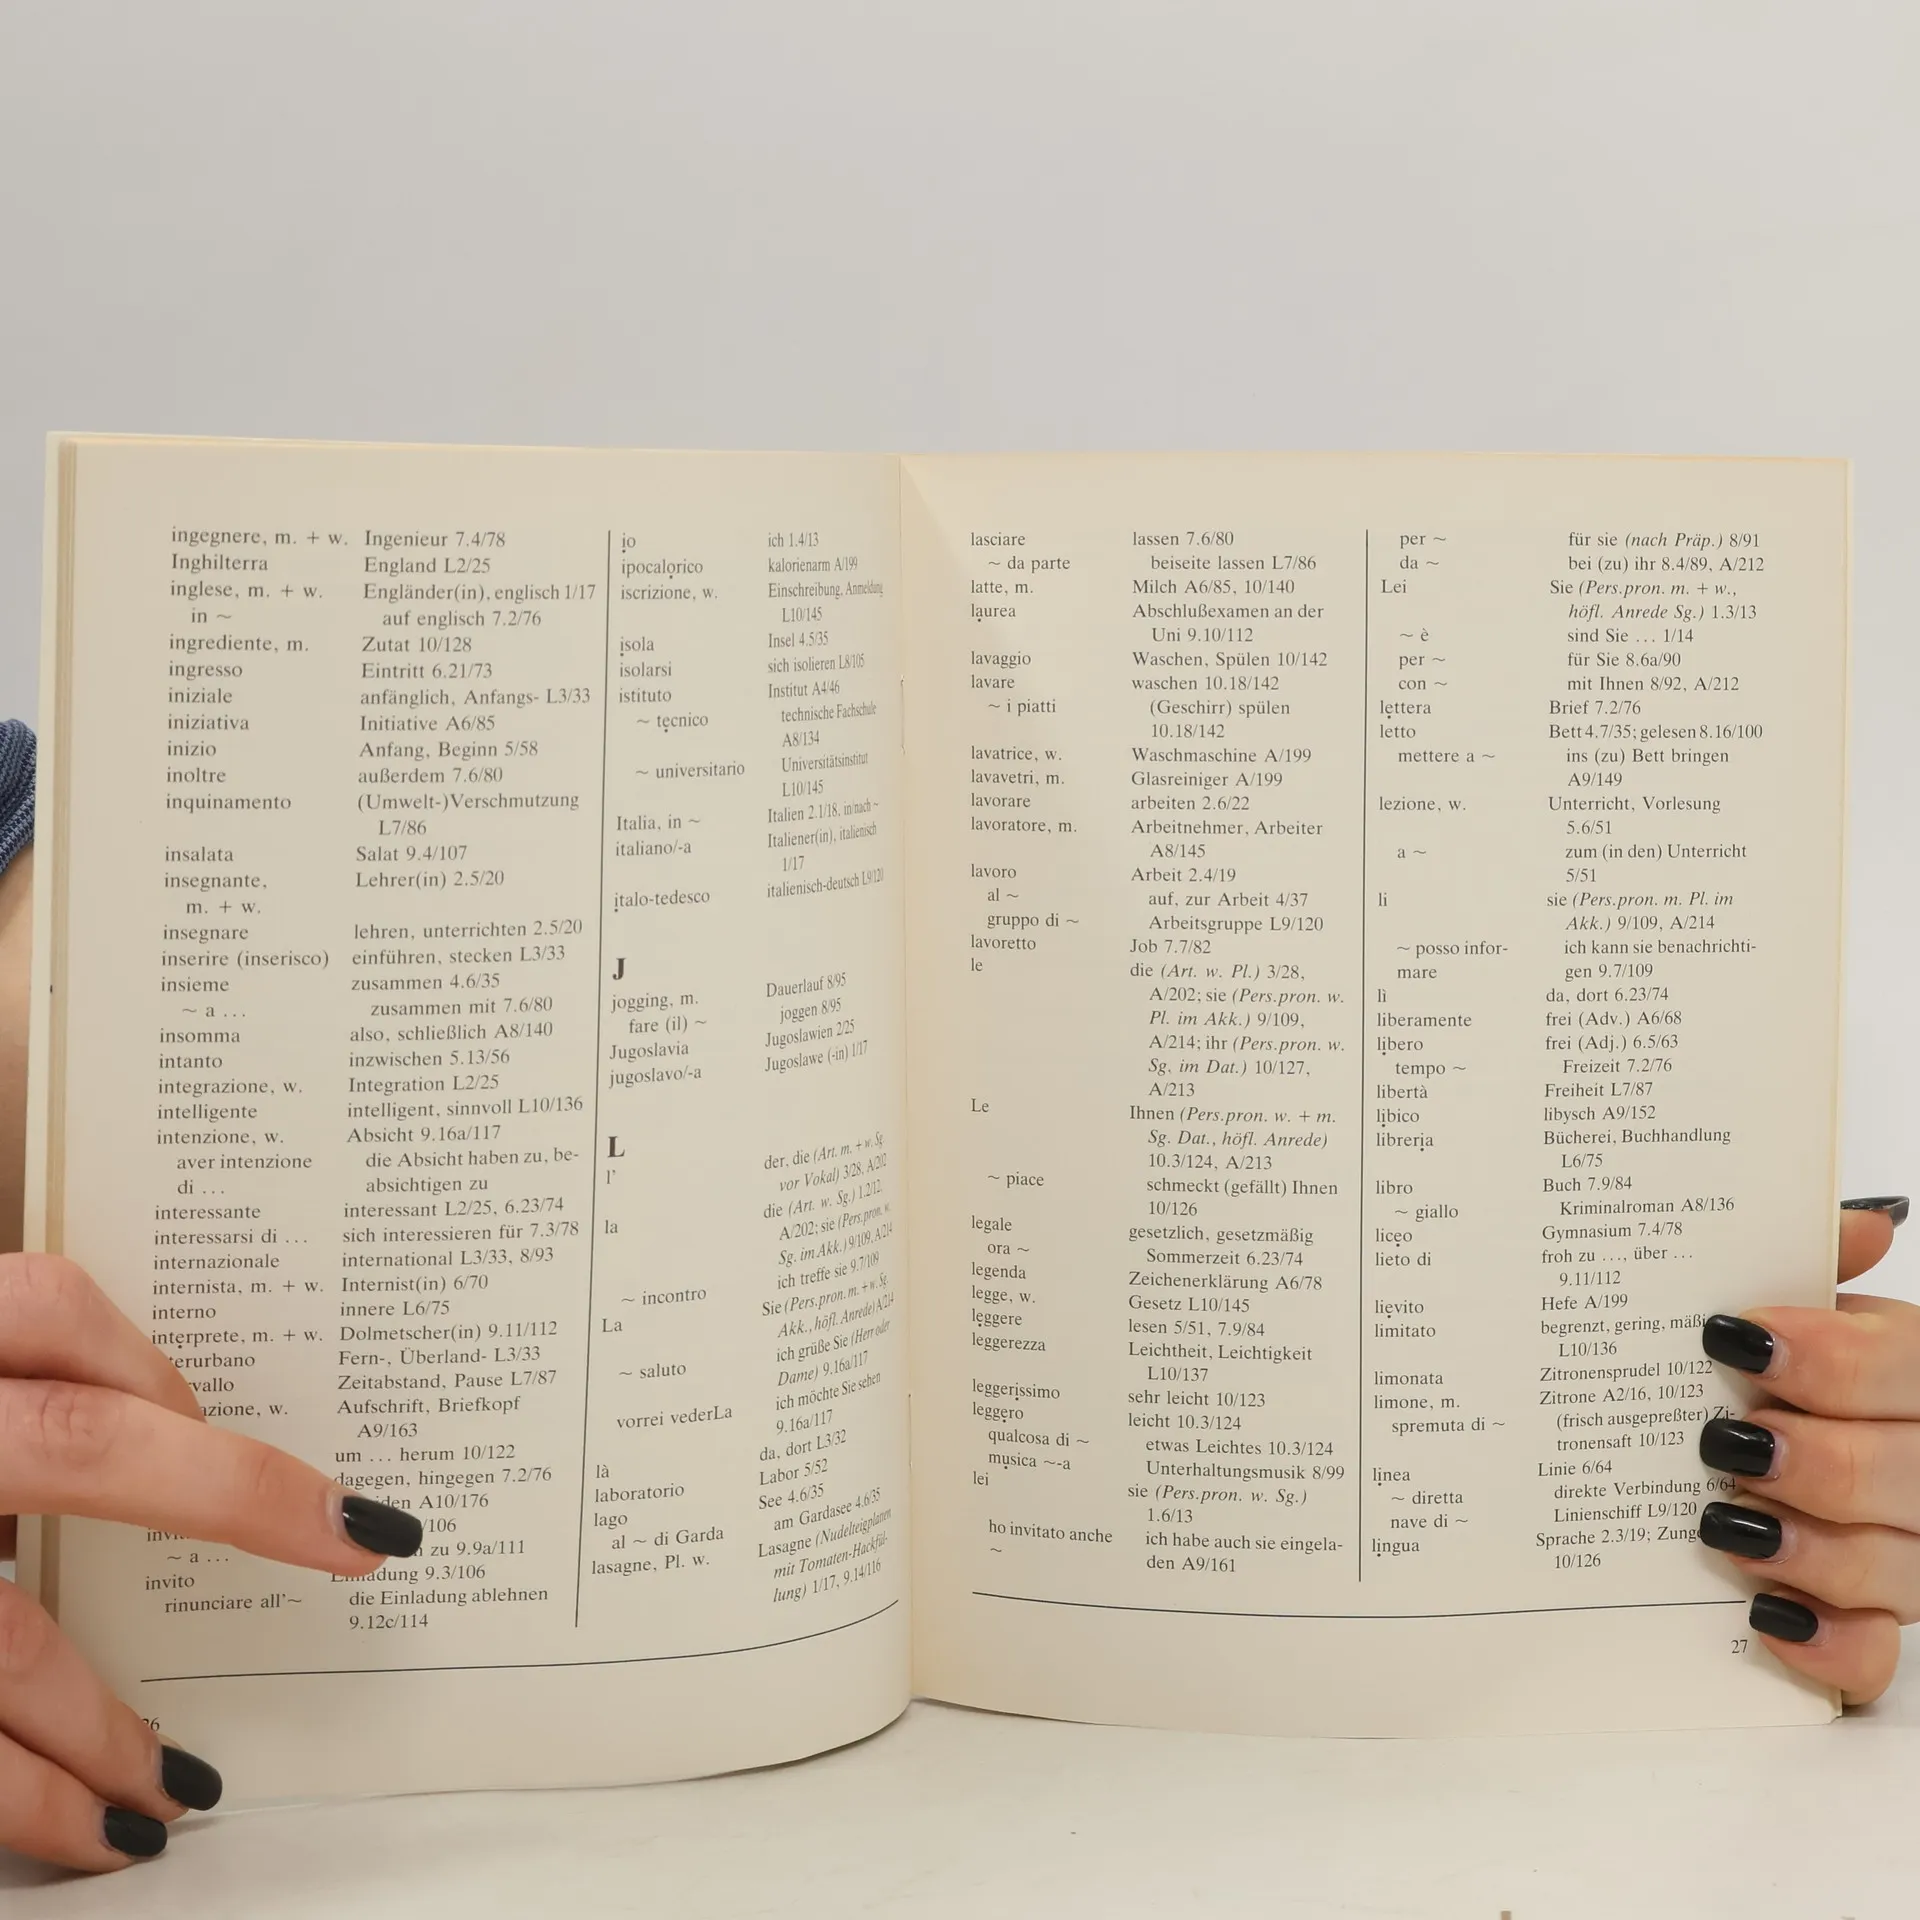 ingegnere, m. + w. Ingenieur 7.4/78
Inghilterra England L2/25
inglese, m. + w. Engländer(in), englisch 1/17
in ~ auf englisch 7.2/76
ingrediente, m. Zutat 10/128
ingresso Eintritt 6.21/73
iniziale anfänglich, Anfangs- L3/33
iniziativa Initiative A6/85
inizio Anfang, Beginn 5/58
inoltre außerdem 7.6/80
inquinamento (Umwelt-)Verschmutzung
L7/86
insalata Salat 9.4/107
insegnante, Lehrer(in) 2.5/20
m. + w.
insegnare lehren, unterrichten 2.5/20
inserire (inserisco) einführen, stecken L3/33
insieme zusammen 4.6/35
~ a ... zusammen mit 7.6/80
insomma also, schließlich A8/140
intanto inzwischen 5.13/56
integrazione, w. Integration L2/25
intelligente intelligent, sinnvoll L10/136
intenzione, w. Absicht 9.16a/117
aver intenzione die Absicht haben zu, be-
di ... absichtigen zu
interessante interessant L2/25, 6.23/74
interessarsi di ... sich interessieren für 7.3/78
internazionale international L3/33, 8/93
internista, m. + w. Internist(in) 6/70
interno innere L6/75
intẹrprete, m. + w. Dolmetscher(in) 9.11/112
terurbano Fern-, Überland- L3/33
vallo Zeitabstand, Pause L7/87
azione, w. Aufschrift, Briefkopf
A9/163
um ... herum 10/122
dagegen, hingegen 7.2/76
den A10/176
/106
~ a ... zu 9.9a/111
invito adung 9.3/106
rinunciare all'~ die Einladung ablehnen
9.12c/114
ịo ich 1.4/13
ipocalọrico kalorienarm A/199
iscrizione, w. Einschreibung, Anmeldung
L10/145
ịsola Insel 4.5/35
isolarsi sich isolieren L8/105
istituto Institut A4/46
~ tẹcnico technische Fachschule
A8/134
~ universitario Universitätsinstitut
L10/145
Italia, in ~ Italien 2.1/18, in/nach ~
italiano/-a Italiener(in), italienisch
1/17
ịtalo-tedesco italienisch-deutsch L9/120
J
jogging, m. Dauerlauf 8/95
fare (il) ~ joggen 8/95
Jugoslavia Jugoslawien 2/25
jugoslavo/-a Jugoslawe (-in) 1/17
L
l' der, die (Art. m. + w. Sg.
vor Vokal) 3/28, A/202
la die (Art. w. Sg.) 1.2/12,
A/202; sie (Pers.pron. w.
Sg. im Akk.) 9/109, A/214
~ incontro ich treffe sie 9.7/109
La Sie (Pers.pron. m. + w. Sg.
Akk., höfl. Anrede) A/214
~ saluto ich grüße Sie (Herr oder
Dame) 9.16a/117
vorrei vederLa ich möchte Sie sehen
9.16a/117
là da, dort L3/32
laboratorio Labor 5/52
lago See 4.6/35
al ~ di Garda am Gardasee 4.6/35
lasagne, Pl. w. Lasagne (Nudelteigplatten
mit Tomaten-Hackfül-
lung) 1/17, 9.14/116
lasciare lassen 7.6/80
~ da parte beiseite lassen L7/86
latte, m. Milch A6/85, 10/140
lạurea Abschlußexamen an der
Uni 9.10/112
lavaggio Waschen, Spülen 10/142
lavare waschen 10.18/142
~ i piatti (Geschirr) spülen
10.18/142
lavatrice, w. Waschmaschine A/199
lavavetri, m. Glasreiniger A/199
lavorare arbeiten 2.6/22
lavoratore, m. Arbeitnehmer, Arbeiter
A8/145
lavoro Arbeit 2.4/19
al ~ auf, zur Arbeit 4/37
gruppo di ~ Arbeitsgruppe L9/120
lavoretto Job 7.7/82
le die (Art. w. Pl.) 3/28,
A/202; sie (Pers.pron. w.
Pl. im Akk.) 9/109,
A/214; ihr (Pers.pron. w.
Sg. im Dat.) 10/127,
A/213
Le Ihnen (Pers.pron. w. + m.
Sg. Dat., höfl. Anrede)
10.3/124, A/213
~ piace schmeckt (gefällt) Ihnen
10/126
legale gesetzlich, gesetzmäßig
ora ~ Sommerzeit 6.23/74
legenda Zeichenerklärung A6/78
legge, w. Gesetz L10/145
lẹggere lesen 5/51, 7.9/84
leggerezza Leichtheit, Leichtigkeit
L10/137
leggerịssimo sehr leicht 10/123
leggẹro leicht 10.3/124
qualcosa di ~ etwas Leichtes 10.3/124
mụsica ~-a Unterhaltungsmusik 8/99
lei sie (Pers.pron. w. Sg.)
1.6/13
ho invitato anche ich habe auch sie eingela-
~ den A9/161
per ~ für sie (nach Präp.) 8/91
da ~ bei (zu) ihr 8.4/89, A/212
Lei Sie (Pers.pron. m. + w.,
höfl. Anrede Sg.) 1.3/13
~ è sind Sie ... 1/14
per ~ für Sie 8.6a/90
con ~ mit Ihnen 8/92, A/212
lẹttera Brief 7.2/76
letto Bett 4.7/35; gelesen 8.16/100
mettere a ~ ins (zu) Bett bringen
A9/149
lezione, w. Unterricht, Vorlesung
5.6/51
a ~ zum (in den) Unterricht
5/51
li sie (Pers.pron. m. Pl. im
Akk.) 9/109, A/214
~ posso infor- ich kann sie benachrichti-
mare gen 9.7/109
lì da, dort 6.23/74
liberamente frei (Adv.) A6/68
lịbero frei (Adj.) 6.5/63
tempo ~ Freizeit 7.2/76
libertà Freiheit L7/87
lịbico libysch A9/152
librerịa Bücherei, Buchhandlung
L6/75
libro Buch 7.9/84
~ giallo Kriminalroman A8/136
licẹo Gymnasium 7.4/78
lieto di froh zu ..., über ...
9.11/112
liẹvito Hefe A/199
limitato begrenzt, gering, mäßi
L10/136
limonata Zitronensprudel 10/122
limone, m. Zitrone A2/16, 10/123
spremuta di ~ (frisch ausgepreßter) Zi-
tronensaft 10/123
lịnea Linie 6/64
~ diretta direkte Verbindung 6/64
nave di ~ Linienschiff L9/120
lịngua Sprache 2.3/19; Zunge
10/126
27